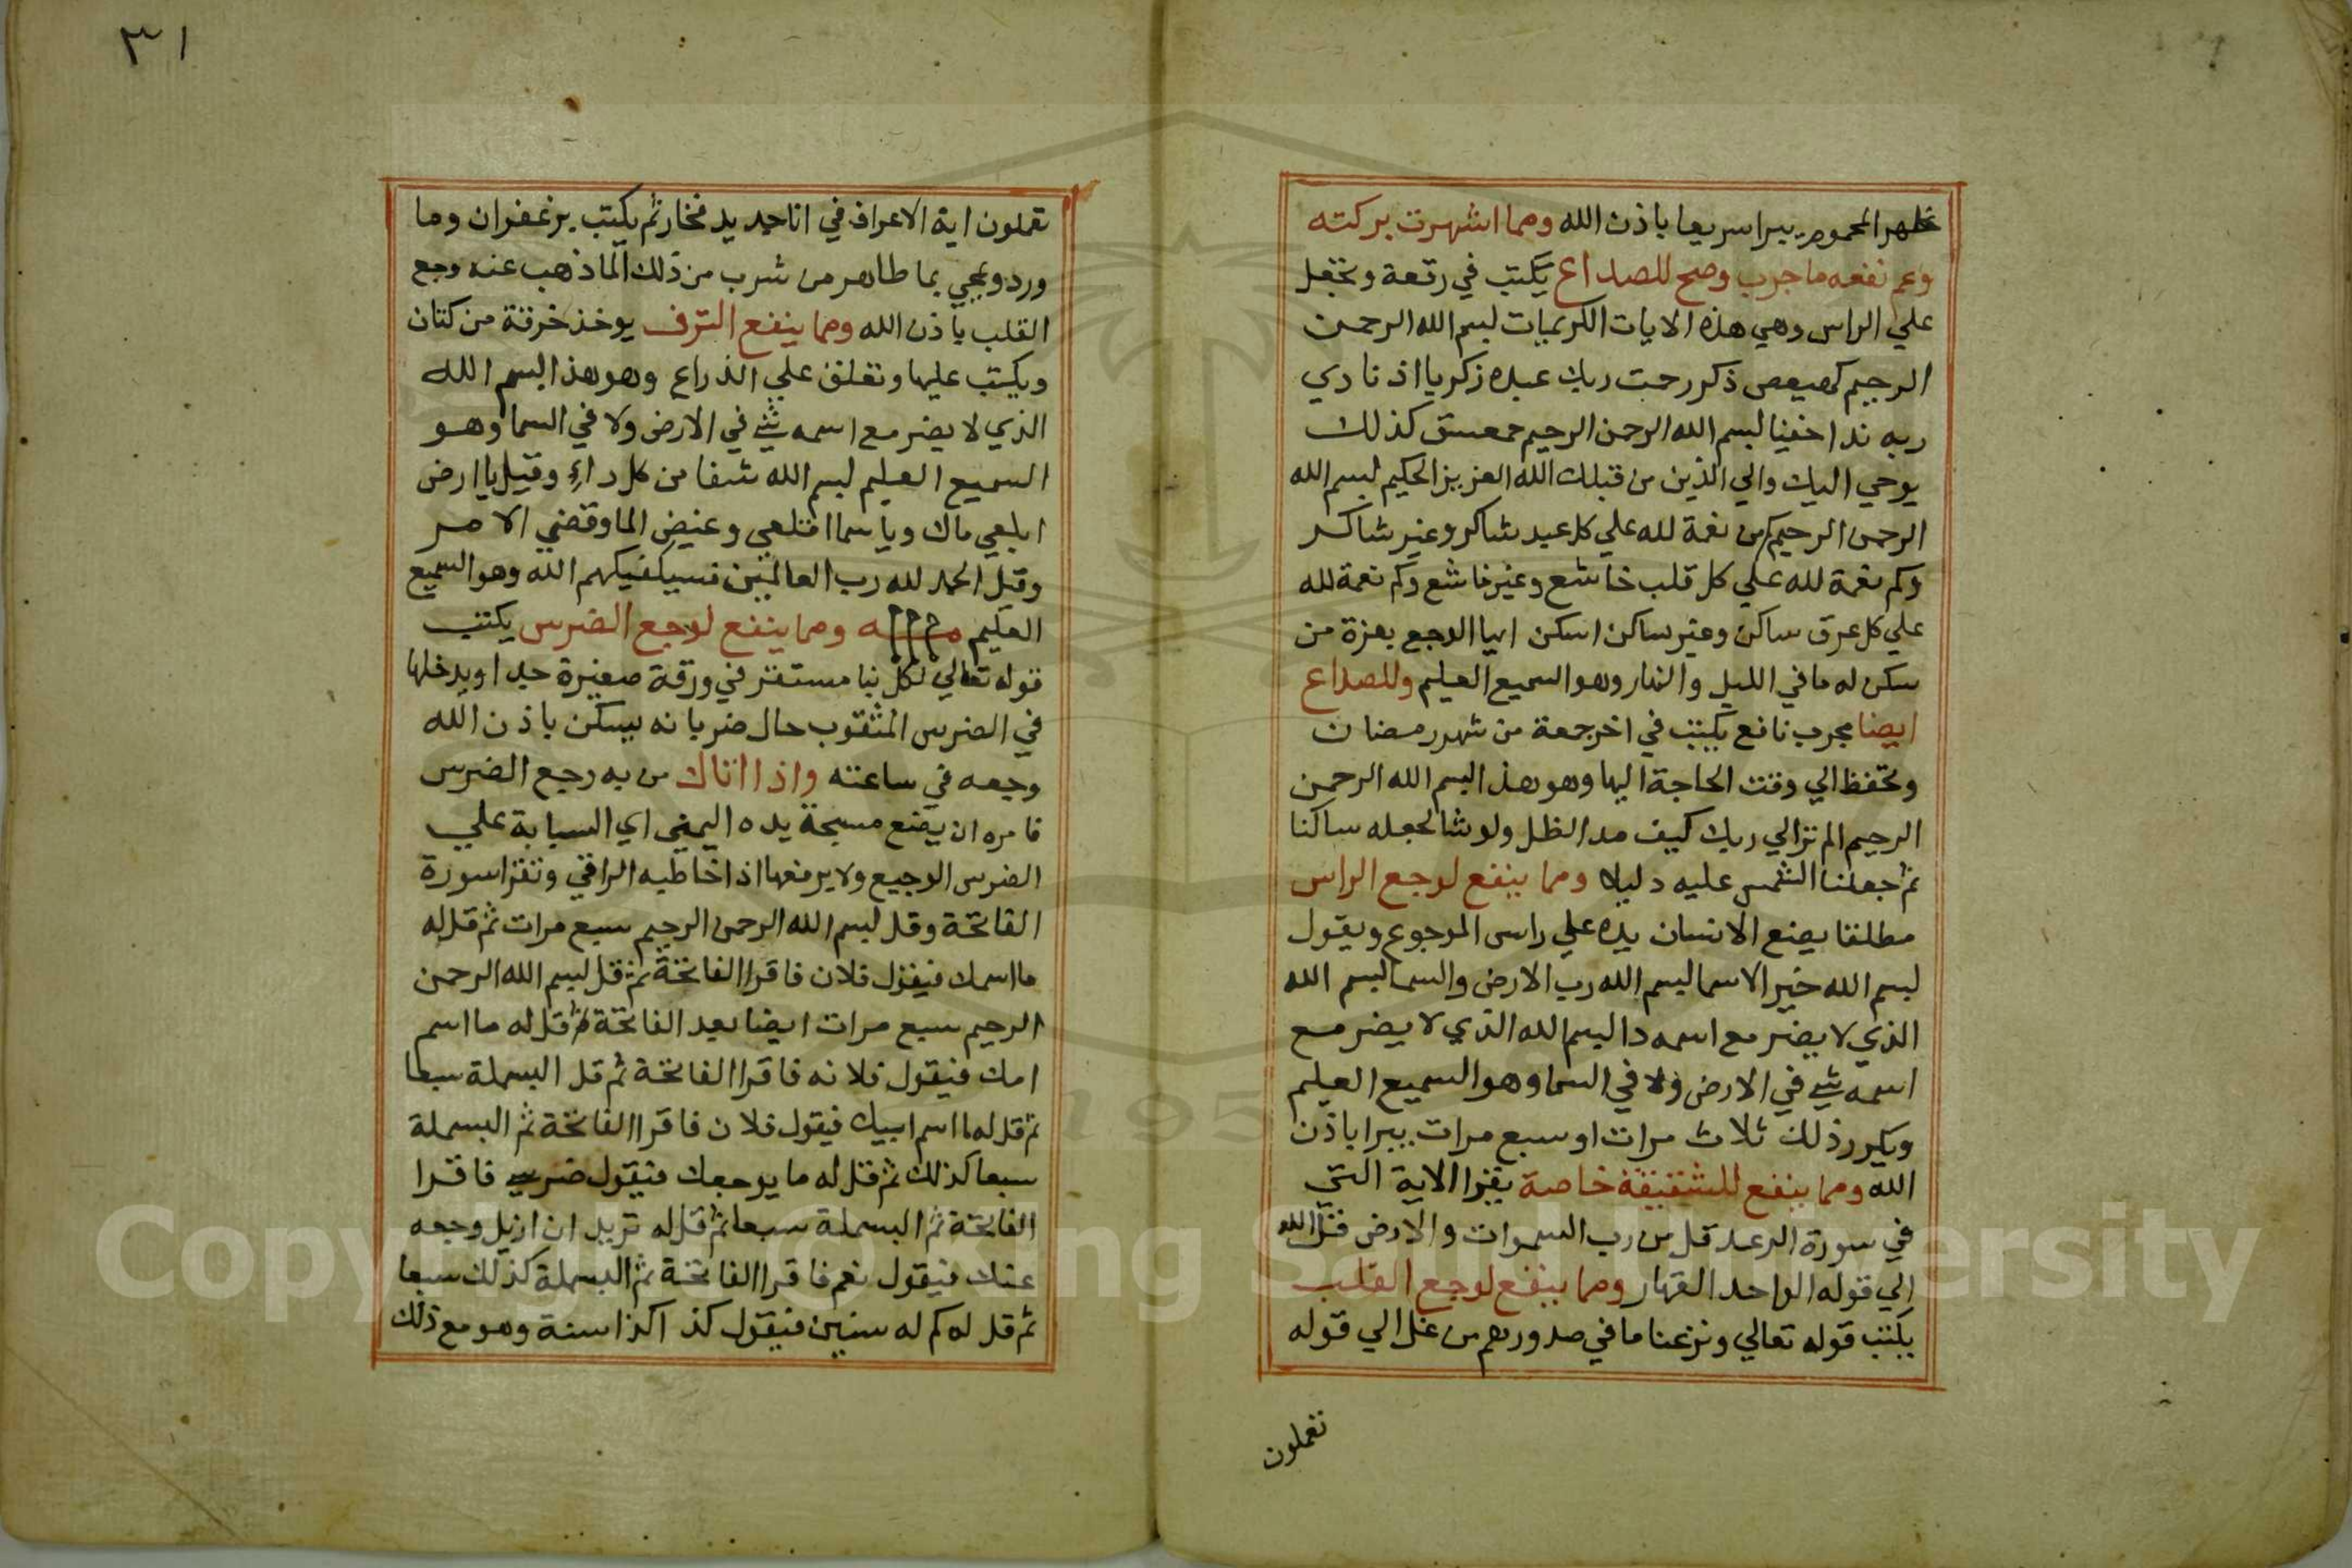 ظهر المحموم يبرا سريعا باذن الله ومما اشهرت بركته
وعم نفعه ما جرب وصح للصداع يكتب في رقعة وتجعل
علي الراس وهي هذه الايات الكريمات بسم الله الرحمن
الرحيم كهيعص ذكر رحمت ربك عبده زكريا اذ نادي
ربه ندا خفيا بسم الله الرحمن الرحيم حمعسق كذلك
يوحي اليك والي الذين من قبلك الله العزيز الحكيم بسم الله
الرحمن الرحيم كم من نعمة لله علي كل عبد شاكر وغير شاكر
وكم نعمة لله علي كل قلب خاشع وغير خاشع وكم نعمة لله
علي كل عرق ساكن وغير ساكن اسكن ايها الوجع بعزة من
سكن له ما في الليل والنهار وهو السميع العليم وللصداع
ايضا مجرب نافع يكتب في اخر جمعة من شهر رمضان
وتحفظ الي وقت الحاجة اليها وهو هذا بسم الله الرحمن
الرحيم الم تر الي ربك كيف مد الظل ولو شا لجعله ساكنا
ثم جعلنا الشمس عليه دليلا ومما ينفع لوجع الراس
مطلقا يضع الانسان يده علي راس الموجوع ويقول
بسم الله خير الاسما بسم الله رب الارض والسما بسم الله
الذي لا يضر مع اسمه دا بسم الله الذي لا يضر مع
اسمه شي في الارض ولا في السما وهو السميع العليم
ويكرر ذلك ثلاث مرات او سبع مرات يبرا باذن
الله ومما ينفع للشقيقة خاصة يقرا الاية التي
في سورة الرعد قل من رب السموات والارض قل الله
الي قوله الواحد القهار ومما ينفع لوجع القلب
يكتب قوله تعالي ونزعنا ما في صدورهم من غل الي قوله
تعملون
٣١
تعملون اية الاعراف في انا جديد فخار ثم يكتب بزعفران وما
ورد ويمحي بما طاهر من شرب من ذلك الما ذهب عنه وجع
القلب باذن الله ومما ينفع النزف يوخذ خرقة من كتان
ويكتب عليها وتعلق علي الذراع وهو هذا بسم الله
الذي لا يضر مع اسمه شي في الارض ولا في السما وهو
السميع العليم بسم الله شفا من كل داء وقيل يا ارض
ابلعي ماك ويا سما اقلعي وغيض الما وقضي الامر
وقيل الحمد لله رب العالمين فسيكفيكهم الله وهو السميع
العليم ومما ينفع لوجع الضرس يكتب
قوله تعالي لكل نبا مستقر في ورقة صغيرة جدا ويدخلها
في الضرس المثقوب حال ضربانه يسكن باذن الله
وجعه في ساعته واذا اتاك من به رجيع الضرس
فامره ان يضع مسبحة يده اليمني اي السبابة علي
الضرس الوجيع ولا يرفعها اذا خاطبه الراقي وتقرا سورة
الفاتحة وقل بسم الله الرحمن الرحيم سبع مرات ثم قل له
ما اسمك فيقول فلان فاقرا الفاتحة ثم قل بسم الله الرحمن
الرحيم سبع مرات ايضا بعد الفاتحة ثم قل له ما اسم
امك فيقول فلانه فاقرا الفاتحة ثم قل البسملة سبعا
ثم قل له ما اسم ابيك فيقول فلان فاقرا الفاتحة ثم البسملة
سبعا كذلك ثم قل له ما يوجعك فيقول ضرسي فاقرا
الفاتحة ثم البسملة سبعا ثم قل له تريد ان ازيل وجعه
عنك فيقول نعم فاقرا الفاتحة ثم البسملة كذلك سبعا
ثم قل له كم له سنين فيقول كذا كذا سنة وهو مع ذلك
Copyright © King Saud University
195